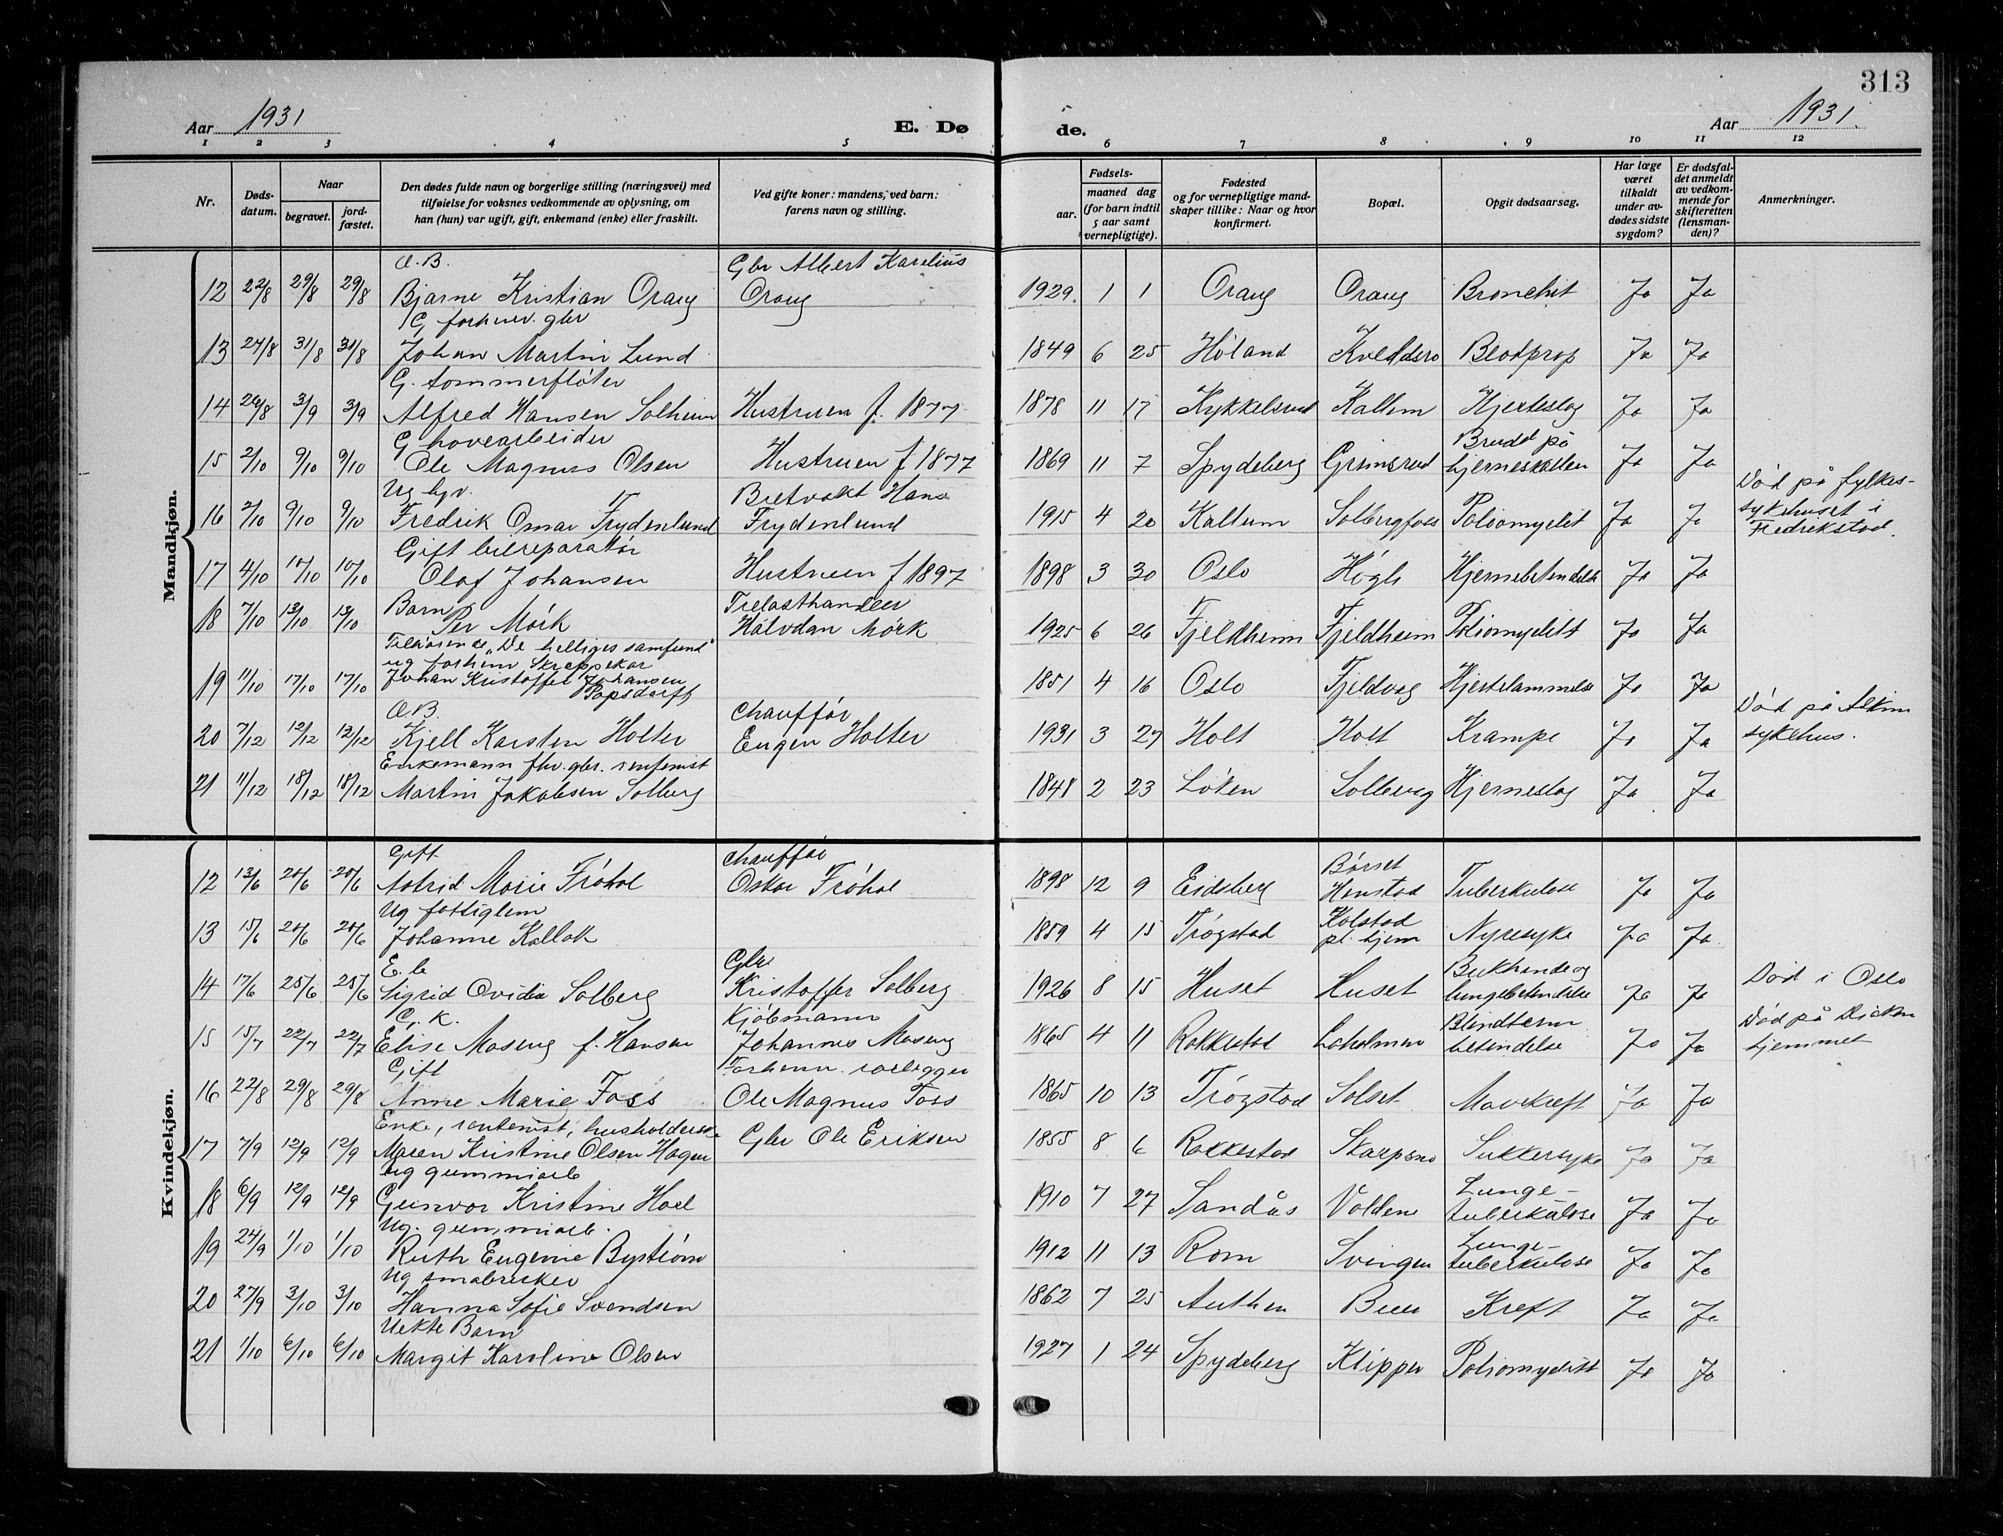 313
Aar 1931
E. Dø
de.
Aar 1931.
1 2 3 4 5 6 7 8 9 10 11 12
Nr.
Døds-
datum.
Naar
begravet.
jord-
fæstet.
Den dødes fulde navn og borgerlige stilling (næringsvei) med
tilføielse for voksnes vedkommende av oplysning, om
han (hun) var ugift, gift, enkemand (enke) eller fraskilt.
Ved gifte koner: mandens, ved barn:
farens navn og stilling.
Fødsels-
aar.
maaned dag
(for barn indtil
5 aar samt
vernepligtige).
Fødested
og for vernepligtige mand-
skaper tillike: Naar og hvor
konfirmert.
Bopæl.
Opgit dødsaarsag.
Har læge
været
tilkaldt
under av-
dødes sidste
sygdom?
Er dødsfal-
det anmeldt
av vedkom-
mende for
skifteretten
(lensman-
den)?
Anmerkninger.
Mandkjøn.
Æ. B. Gbr Albert Karelius
12 22/8 29/8 29/8 Bjarne Kristian Oraug Oraug 1929. 1 1 Oraug Oraug Bronchit Ja Ja
G forhenv. gbr
13 24/8 31/8 31/8 Johan Martin Lund 1849 6 25 Høland Blodprop Ja Ja
G. tømmerfløter
14 29/8 3/9 3/9 Alfred Hansen Solheim Hustruen f. 1877 1878 11 17 Kykkelsrud Kallum Hjerteslag Ja Ja
G hovearbeider Brudd på
15 2/10 9/10 9/10 Ole Magnus Olsen Hustruen f 1877 1869 11 7 Spydeberg Grimsrud hjerneskallen Ja Ja
Ug Hans Død på fylkes-
16 2/10 9/10 9/10 Fredrik Omar Frydenlund Frydenlund 1915 4 20 Kallum Solbergfoss Poliomyelit Ja Ja sykehuset i
Fredrikstad.
Gift bilreparatør
17 4/10 10/10 10/10 Olaf Johansen Hustruen f 1897 1898 3 30 Oslo Høgli Hjernebetendelse Ja Ja
Barn Trelasthandler
18 7/10 13/10 13/10 Per Mørk Halvdan Mørk 1925 6 26 Fjeldheim Fjeldheim Poliomyelitt Ja Ja
Tilhørende „De helliges samfund"
ug forhenv Skreppekar
19 11/10 17/10 17/10 Johan Kristoffer Johansen 1851 4 16 Oslo Fjeldvag Hjertelammelse Ja Ja
Papsdorft
Æ.B. Chauffør Død på Askim
20 7/12 12/12 12/12 Kjell Karsten Holter Eugen Holter 1931 3 27 Holt Holt Krampe Ja Ja sykehus.
Enkemann fhv. gbr. rentenist
21 11/12 18/12 18/12 Martin Jakobsen Solberg 1848 2 23 Løken Solberg Hjerneslag Ja Ja
Kvindekjøn.
Gift chauffør Børset
12 13/6 20/6 20/6 Astrid Marie Frøhol Oskar Frøhol 1898 12 9 Eidsberg Henstad Tuberkulose Ja Ja
Ug fattiglem Kolstad
13 15/6 20/6 20/6 Johanne Kallak 1859 4 15 Trøgstad pl. hjem Nyresyke Ja Ja
E. b Gbr Bukhinde og
14 17/6 25/6 25/6 Sigrid Ovidia Solberg Kristoffer Solberg 1926 8 15 Huset Huset lungebetendelse Ja Ja Død i Oslo
G. k. Kjøbmann Blindtarm Død på Diakon
15 15/7 22/7 22/7 Elise Moseng f. Hansen Johannes Moseng 1865 4 11 Rakkestad Laholmen betendelse Ja Ja hjemmet
Gift Forhenv. rørlegger
16 22/8 29/8 29/8 Anne Marie Foss Ole Magnus Foss 1865 10 13 Trøgstad Solset Mavekreft Ja Ja
Enke, rentenist, husholderske
17 7/9 12/9 12/9 Maren Kristine Olsen Hagen Gbr Ole Eriksen 1855 8 6 Rakkestad Skarpsno Sukkersyke Ja Ja
Ug gummiarb Lunge-
18 6/9 12/9 12/9 Gunvor Kristine Hoel 1910 7 27 Sandås Volden tuberkulose Ja Ja
Ug. gummiarb. Lunge-
19 24/9 1/10 1/10 Ruth Eugenie Bystrøm 1912 11 13 Rom Svingen tuberkulose Ja Ja
Ug småbruker
20 27/9 3/10 3/10 Hanna Sofie Svendsen 1862 7 25 Authen Kreft Ja Ja
Uekte Barn
21 1/10 6/10 6/10 Margit Karoline Olsen 1927 1 24 Spydeberg Klipper Poliomyelitt Ja Ja